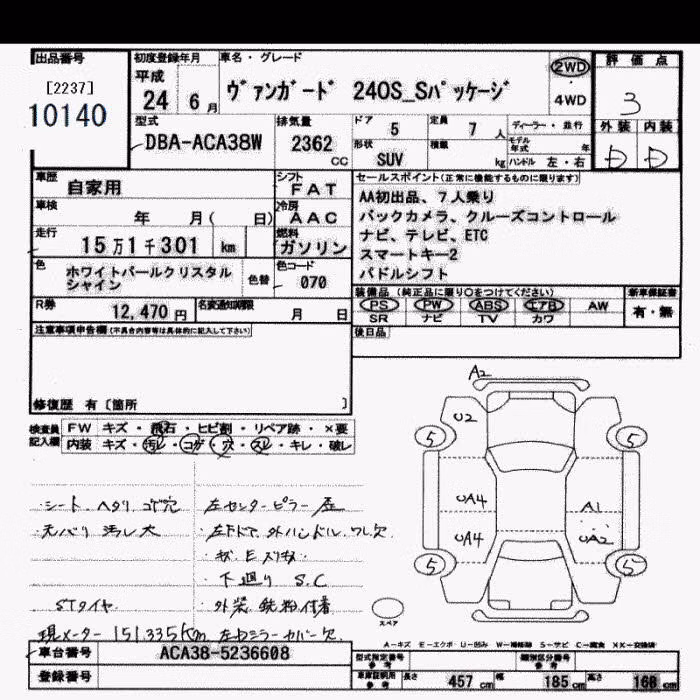 出品番号
[2237]
10140
初度登録年月
平成
24 6 月
車名・グレード
ヴァンガード 240S_Sパッケージ
2WD
4WD
評価点
3
外装 内装
D D
型式
DBA-ACA38W
排気量
2362
cc
ドア 5
形状 SUV
定員 7 人
積載 kg
ディーラー・並行
モデル年式 年
ハンドル 左・右
車歴 自家用
シフト FAT
車検 年 月( 日)
冷房 AAC
走行 15万1千301 km
燃料 ガソリン
色 ホワイトパールクリスタルシャイン
色替
色コード 070
R券 12,470 円
名変通知期限 月 日
セールスポイント(正常に機能するものに限ります)
AA初出品、7人乗り
バックカメラ、クルーズコントロール
ナビ、テレビ、ETC
スマートキー2
パドルシフト
装備品(純正品に限り○をつけてください)
新車保証書
PS PW ABS エアB AW
有・無
SR ナビ TV カワ
後日品
注意事項申告欄(不具合内容等は具体的に記入して下さい)
修復歴 有〔箇所 〕
検査員記入欄
FW キズ・飛石・ヒビ割・リペア跡・×要
内装 キズ・汚レ・コゲ・穴・スレ・キレ・破レ
・シート ヘタリ コゲ穴
・左センターピラー
・天バリ 汚レ大
・左Fドア 外ハンドル ワレ欠
下廻り S.C
STタイヤ
・外装 鉄粉付着
現メーター 151,335Km 左ドアミラーカバー欠
A2
U2
5 5
UA4
A1
UA4
UA2
5 5
スペア
A-キズ E-エクボ U-凹み W-補修跡 S-サビ C-腐食 XX-交換済
車台番号 ACA38-5236608
登録番号
型式指定番号 参考
類別区分番号 参考
車庫証明用 参考
長さ 457 cm 幅 185 cm 高さ 168 cm